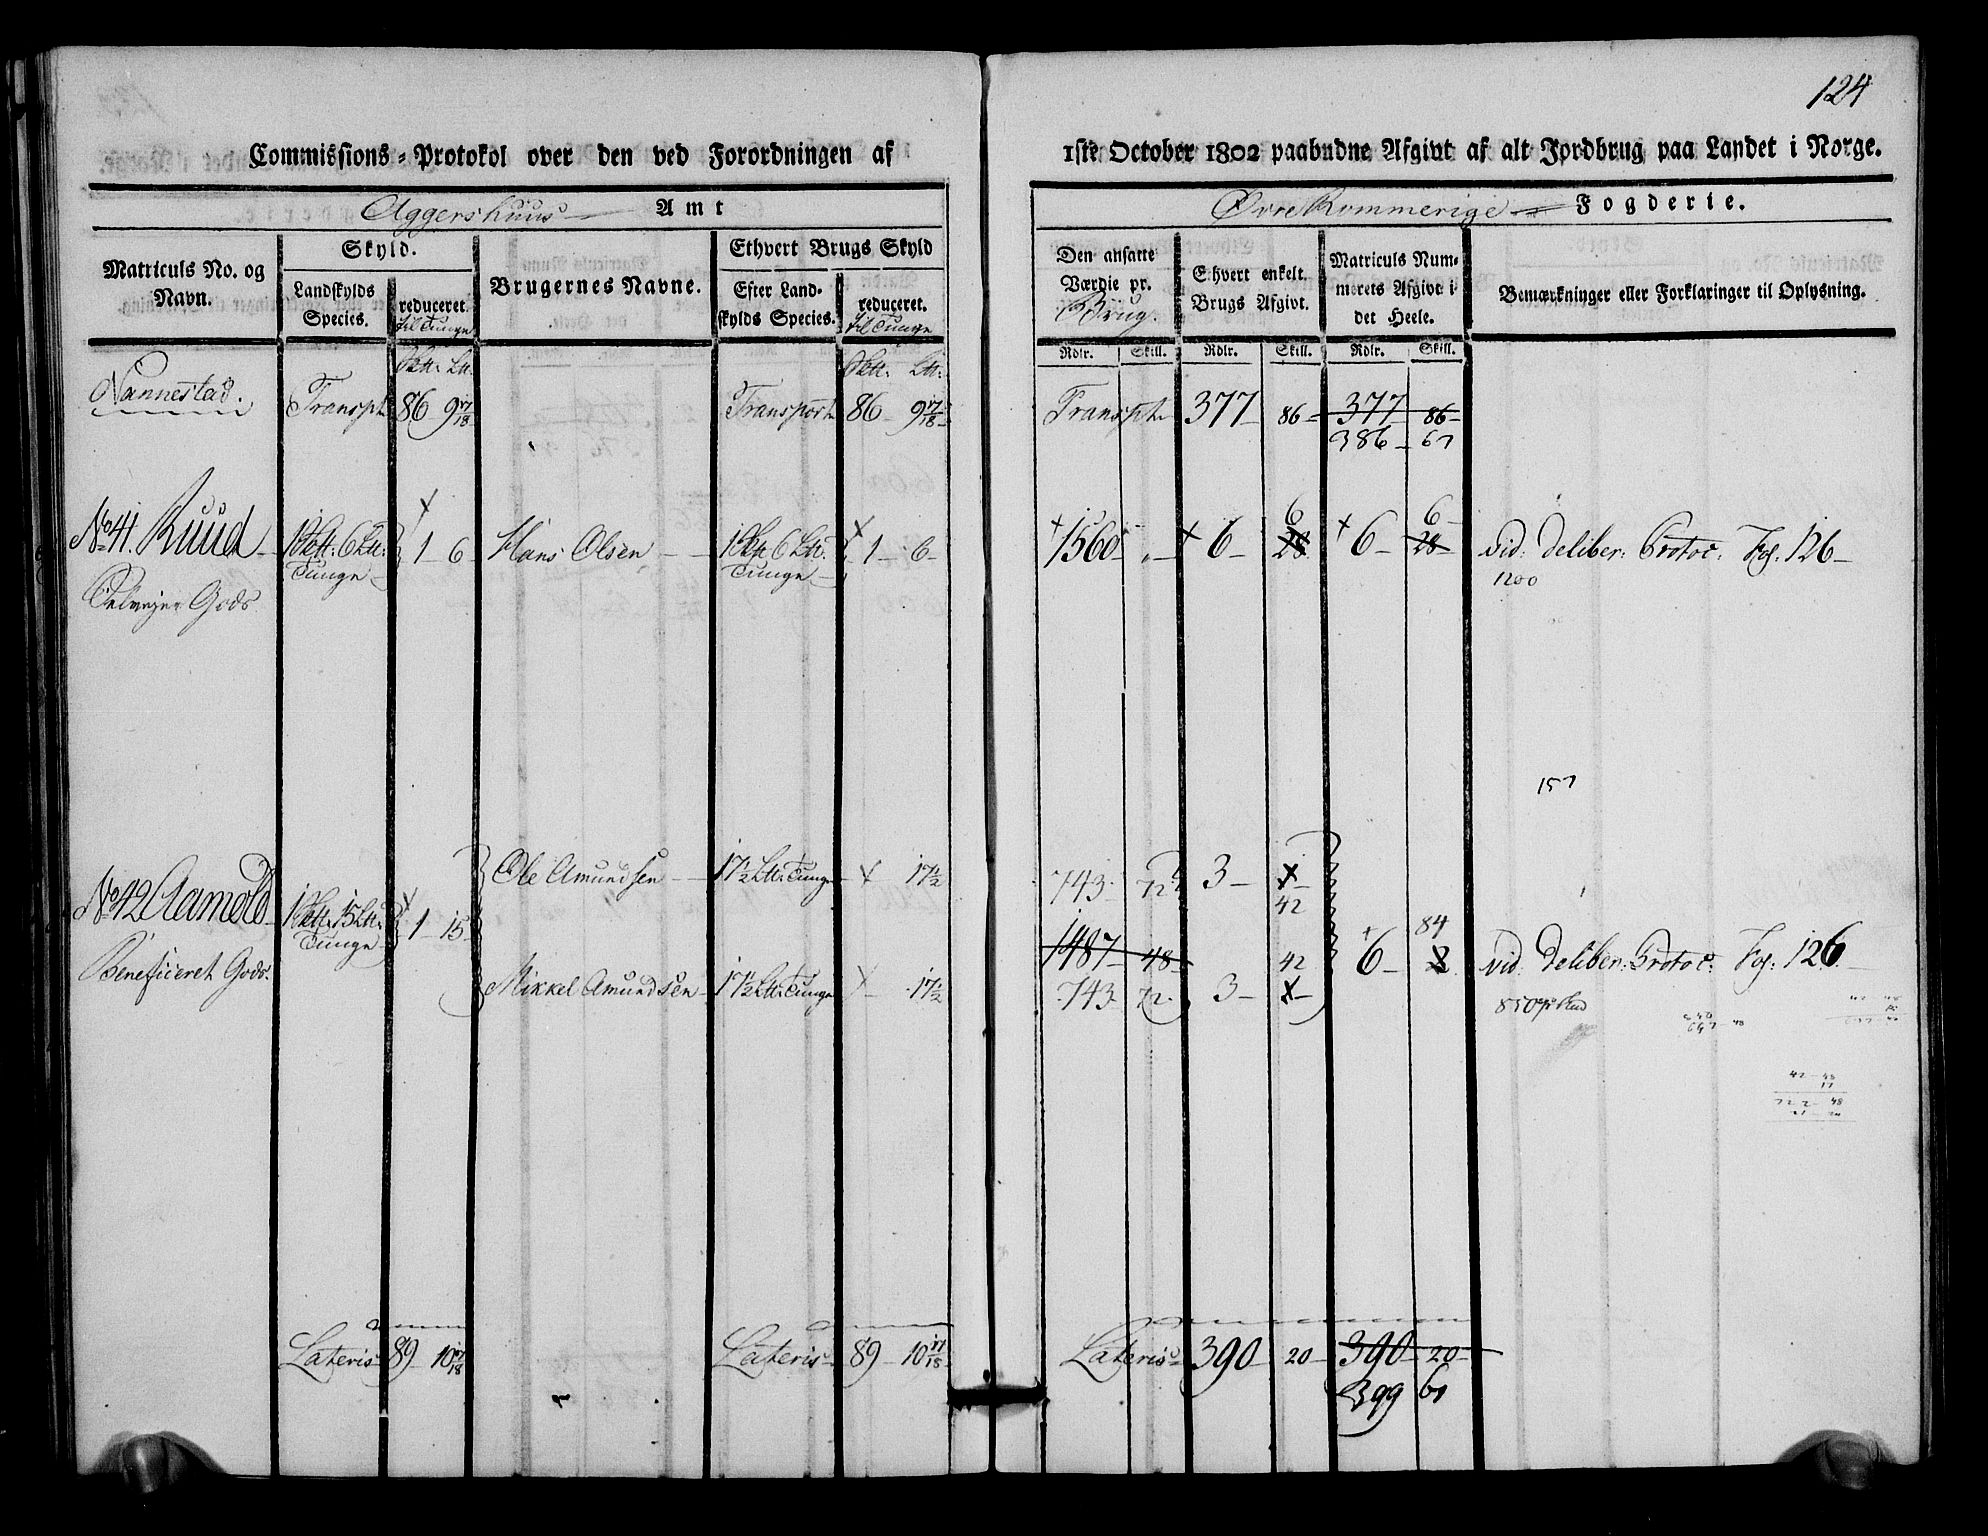 124
Commissions-Protokol over den ved Forordningen af 1ste October 1802 paabudne Afgivt af alt Jordbrug paa Landet i Norge.
Aggershuus Amt
Øvre Rommerige Fogderie.
Matriculs No. og Navn.
Skyld.
Landskylds Species.
reduceret til Tunge
Brugernes Navne.
Ethvert Brugs Skyld
Efter Landskylds Species.
reduceret. til Tunge
Den ansatte Værdie pr. Brug.
Ehvert enkelt Brugs Afgivt.
Matriculs Nummerets Afgivt i det Heele.
Bemærkninger eller Forklaringer til Oplysning.
Rdlr. Skill. Rdlr. Skill. Rdlr. Skill.
Nannestad. Transpt 86 9 17/18 Transport 86 9 17/18 Transpt 377 86 377 86
386 67
No 41. Ruud 6 Lttr: Tunge 1 6 Hans Olsen 6 Lttr. Tunge 1 6 1560 6 28 6 6 28 6 vid: Deliber: Protoc: Fol: 126
1200
Selvejer Gods
157
No 42 Aamold 15 Lttr: Tunge 1 15
Beneficeret Gods.
Ole Amundsen 17 1/2 Lttr: Tunge 17 1/2 743 72 3 42
1487 48 6 84 vid: Deliber: Protoc: Fol: 126
Mikkel Amundsen 17 1/2 Lttr: Tunge 17 1/2 743 72 3 42
42 48
Lateris 89 10 17/18 Lateris 89 10 17/18 Lateris 390 20 390 20
399 61